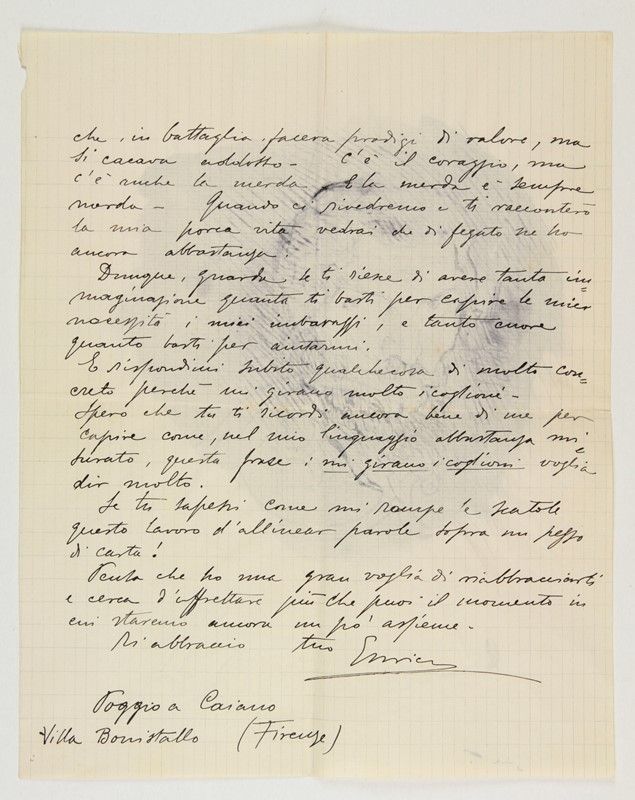 che, in battaglia, faceva prodigi di valore, ma
si cacava addosso - C'è il coraggio, ma
c'è anche la merda. E la merda è sempre
merda - Quando ci rivedremo e ti racconterò
la mia porca vita vedrai che di fegato ne ho
ancora abbastanza.
Dunque, guarda se ti riesce di avere tanta im=
maginazione quanta ti basti per capire le mie
necessità, i miei imbarazzi, e tanto cuore
quanto basti per aiutarmi.
E rispondimi subito qualchecosa di molto con=
creto perchè mi girano molto i coglioni -
Spero che tu ti ricordi ancora bene di me per
capire come, nel mio linguaggio abbastanza mi=
surato, questa frase: mi girano i coglioni voglia
dir molto.
Se tu sapessi come mi rompe le scatole
questo lavoro d'allinear parole sopra un pezzo
di carta!
Pensa che ho una gran voglia di riabbracciarti
e cerca d'affrettare più che puoi il momento in
cui staremo ancora un po' assieme.
Ti abbraccio tuo Enrico
Poggio a Caiano
Villa Bonistallo (Firenze)